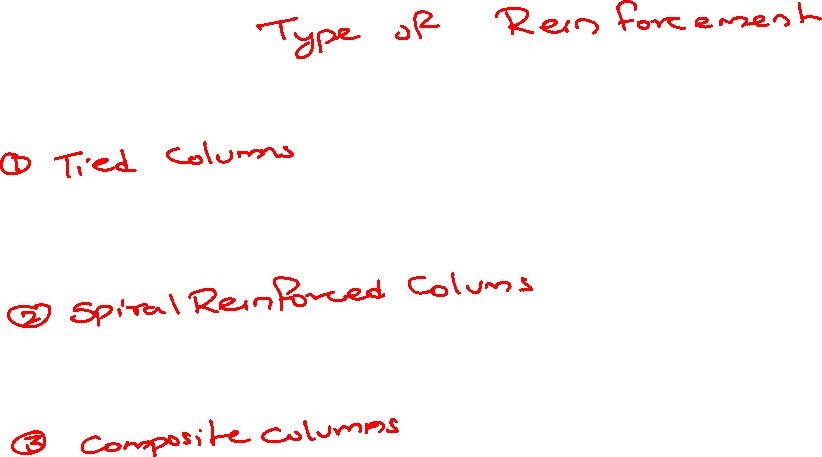 Type of Reinforcement
① Tied Columns
② Spiral Reinforced Colums
③ Composite Columns